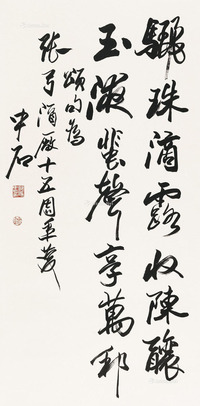 驪珠滴露收陳釀
玉液蜚聲享萬邦
頌句為
張弓酒廠十五周年慶
中石